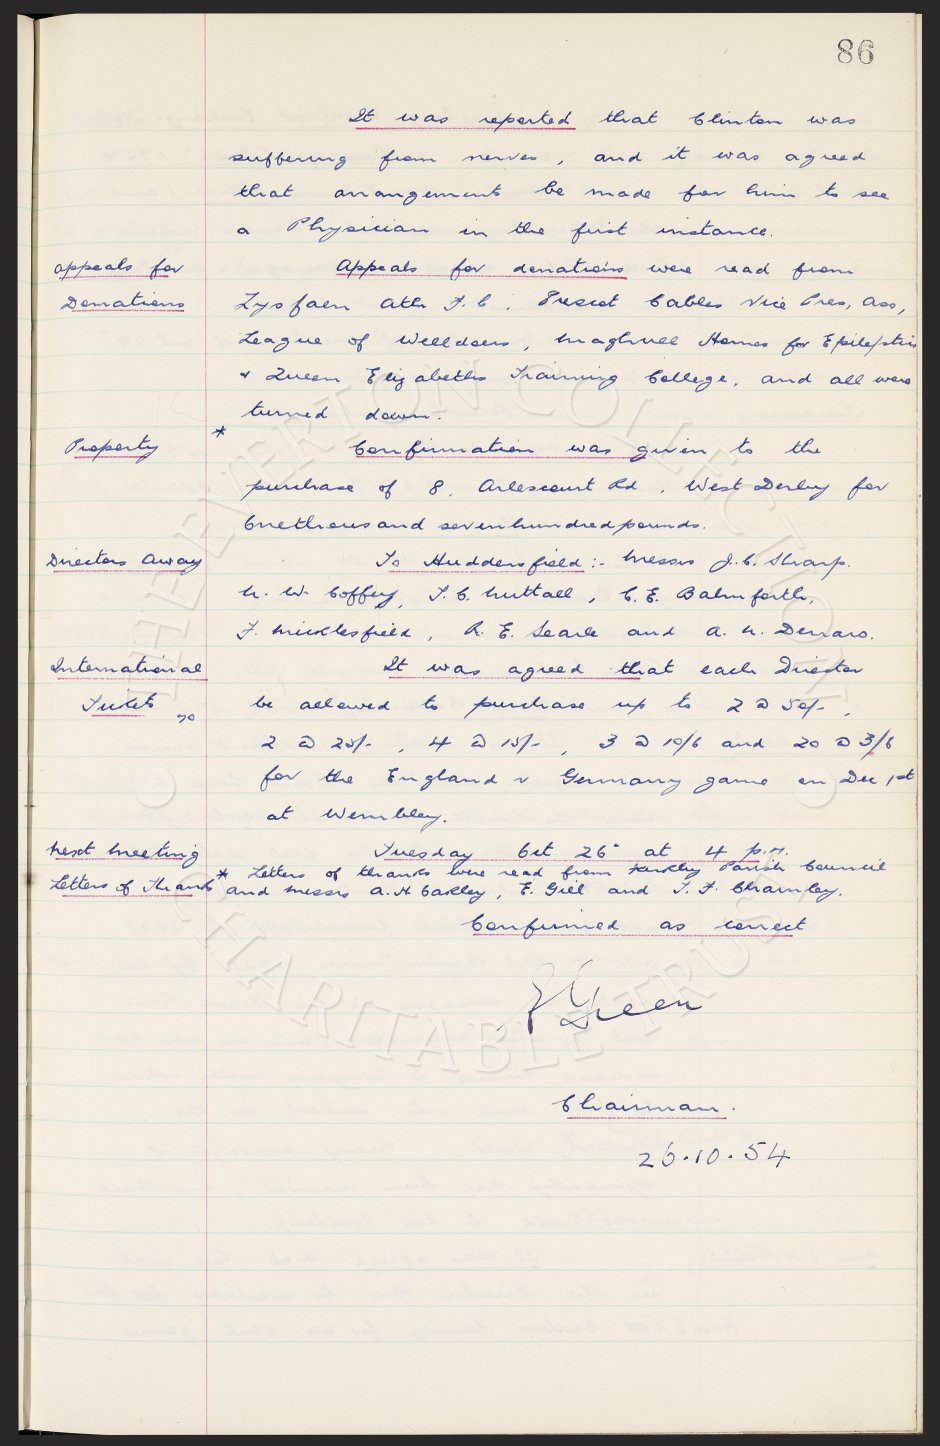 86
It was reported that Clinton was
suffering from nerves, and it was agreed
that arrangements be made for him to see
a Physician in the first instance.
Appeals for Appeals for donations were read from
Donations Lysfaen Ath F.C. Prescot Cables Vice Pres, Ass,
League of Welldoers, Maghull Homes for Epileptics
& Queen Elizabeths Training College, and all were
turned down.
Property * Confirmation was given to the
purchase of 8, Arlescourt Rd, West Derby for
Onethousand sevenhundred pounds.
Directors Away To Huddersfield:- Messrs J.C. Sharp.
N. W. Coffey, T.C. Nuttall, C.E. Balmforth,
F. Micklesfield, R.E. Searle and A. N. Denaro.
International It was agreed that each Director
Tickets be allowed to purchase up to 2 @ 50/-,
2 @ 25/-, 4 @ 15/-, 3 @ 10/6 and 20 @ 3/6
for the England v Germany game on Dec 1st
at Wembley.
Next Meeting Tuesday Oct 26th at 4 p.m.
Letters of Thanks * Letters of thanks were read from Kirkby Parish Council
and Messrs A. H. Oakley, E. Gill and T. F. Charnley.
Confirmed as correct
E Green
Chairman.
26.10.54
THE EVERTON COLLECTION
CHARITABLE TRUST